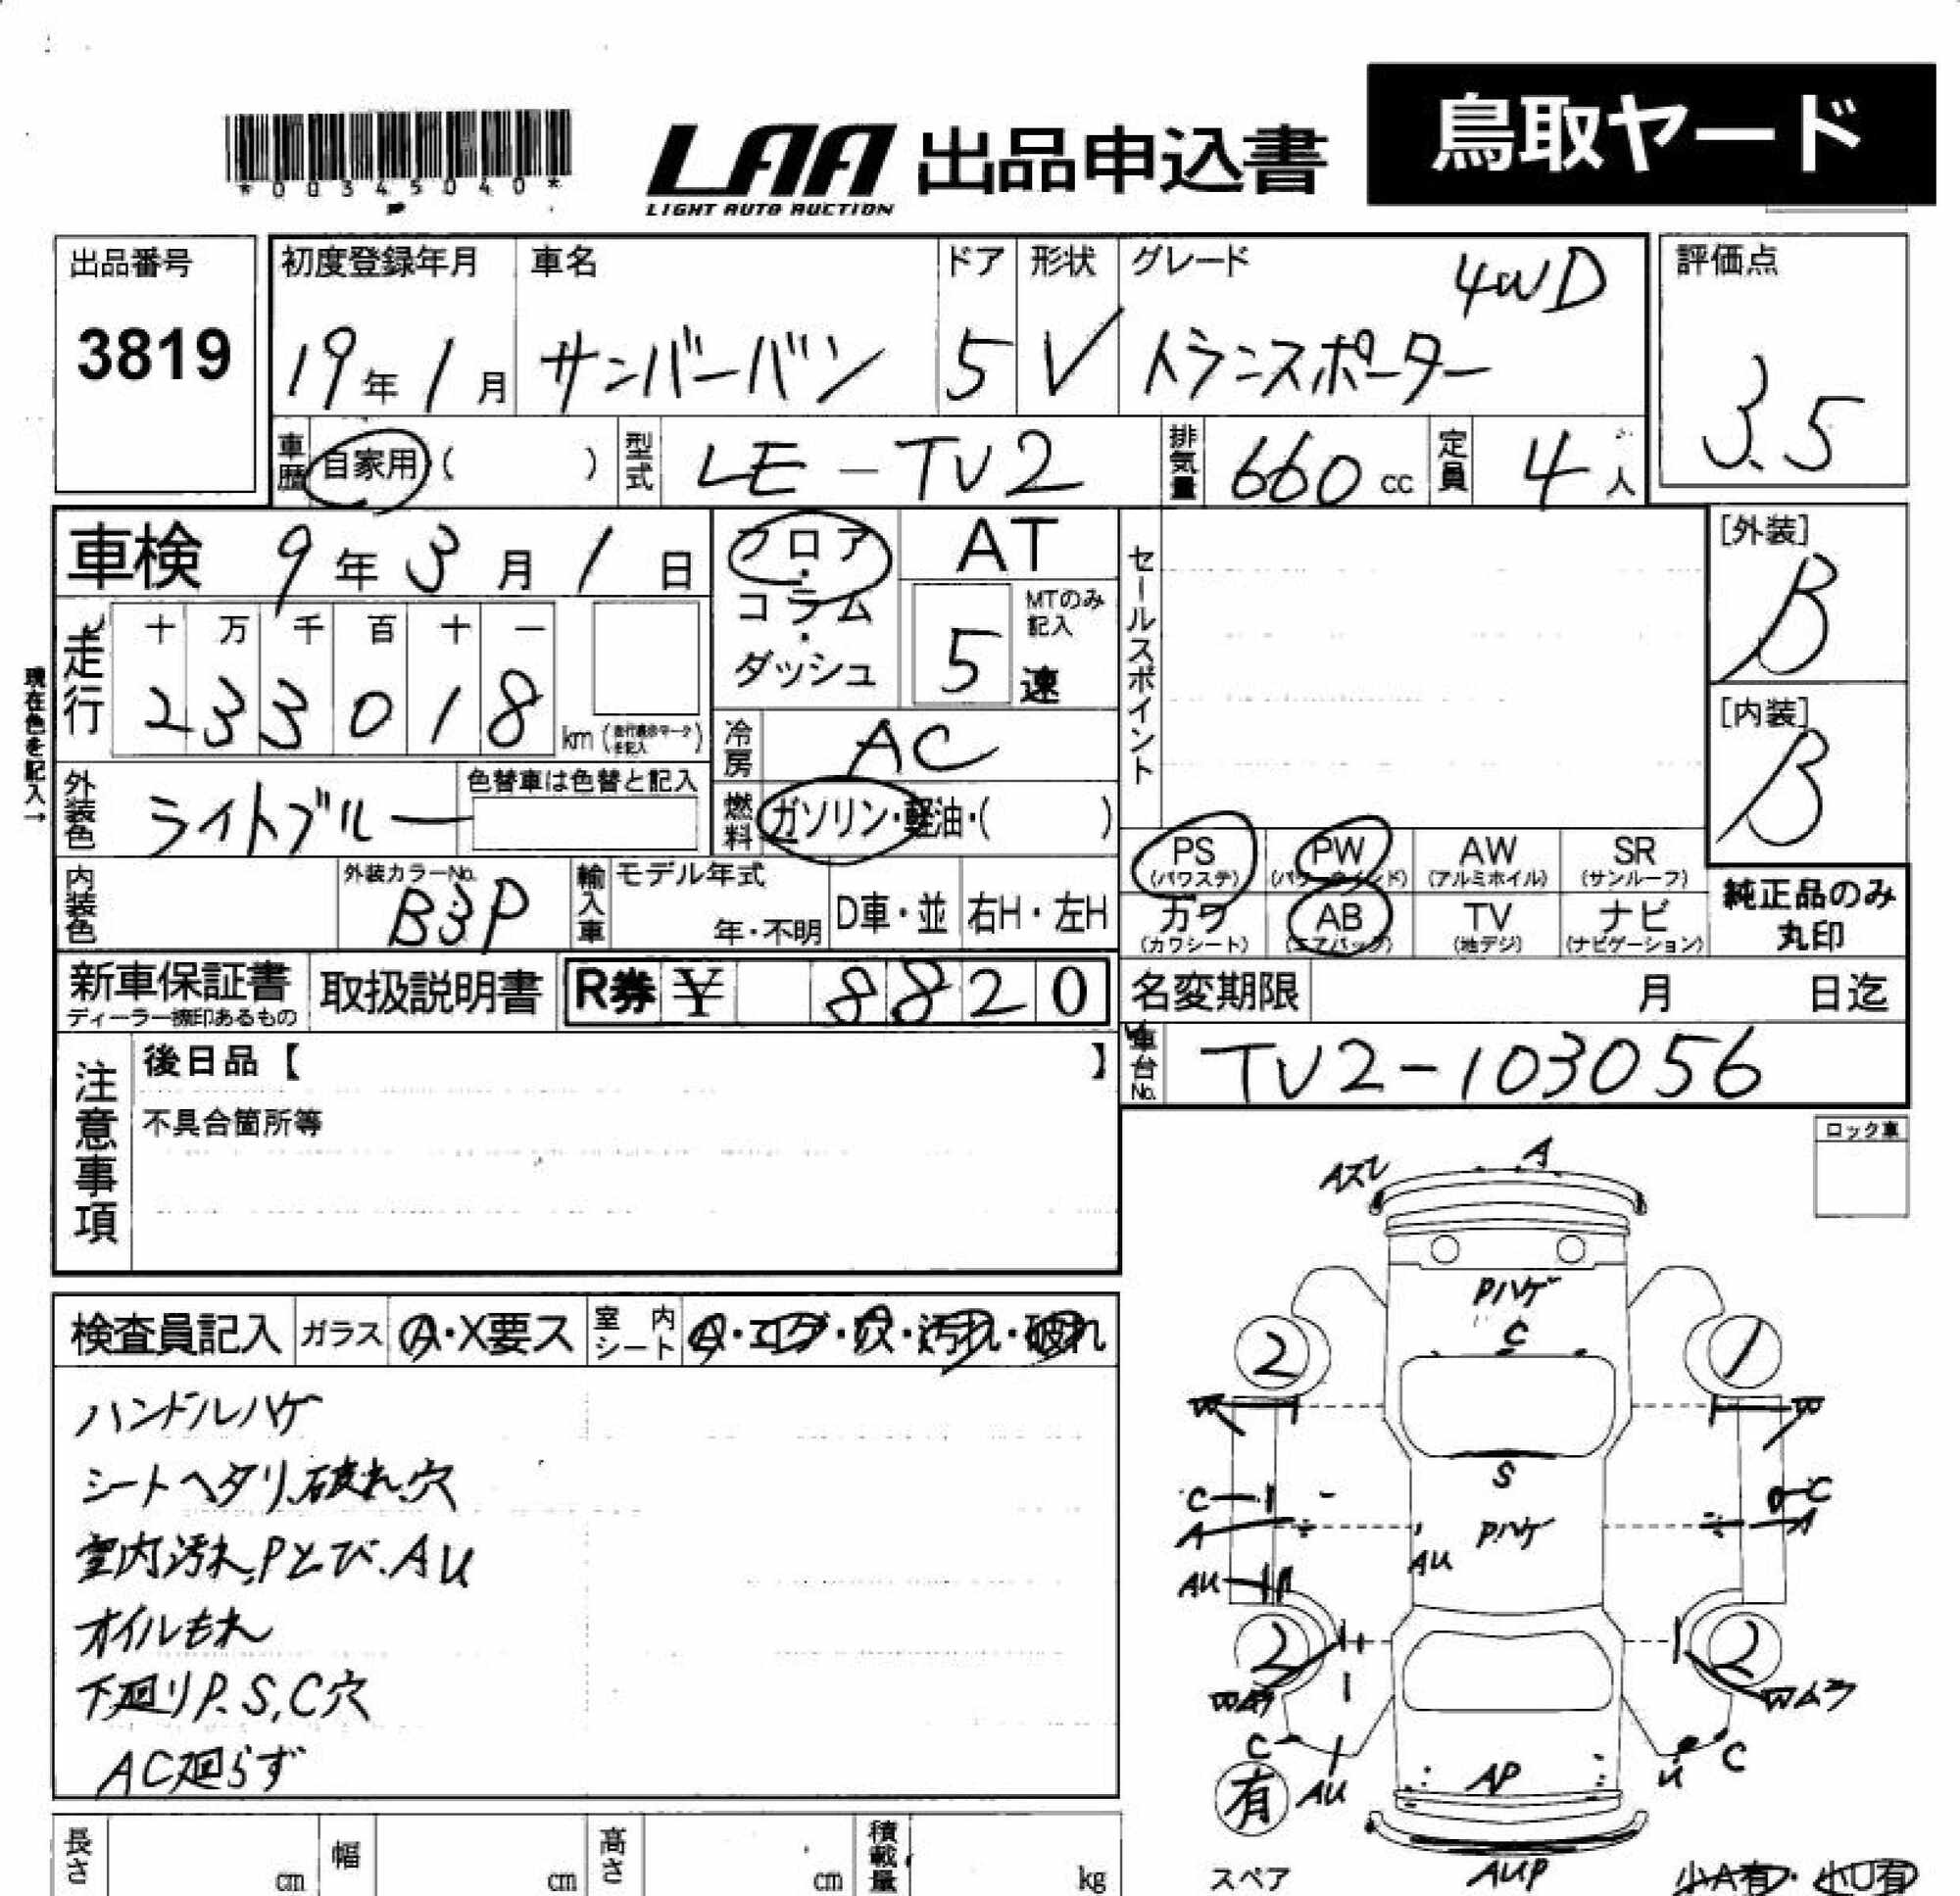 鳥取ヤード
*00345040*
LAA 出品申込書
LIGHT AUTO AUCTION
出品番号
3819
初度登録年月 車名 ドア 形状 グレード 4WD 評価点
19年1月 サンバーバン 5 V トランスポーター 3.5
車歴 自家用 ( ) 型式 LE-TV2 排気量 660 cc 定員 4 人
車検 9年3月1日
フロア・コラム・ダッシュ
AT
5 速
MTのみ記入
走行
十 万 千 百 十 一
2 3 3 0 1 8 km
現在色を記入→
冷房 AC
外装色 ライトブルー
色替車は色替と記入
燃料 ガソリン・軽油・( )
内装色
外装カラーNo.
B3P
輸入車 モデル年式
年・不明 D車・並 右H・左H
セールスポイント
[外装]
B
[内装]
B
PS (パワステ) PW (パワーウインド) AW (アルミホイル) SR (サンルーフ)
カワ (カワシート) AB (エアバック) TV (地デジ) ナビ (ナビゲーション)
純正品のみ
丸印
新車保証書
ディーラー捺印あるもの
取扱説明書 R券 ¥ 8820
名変期限 月 日迄
車台No. TV2-103056
注意事項
後日品【 】
不具合箇所等
ロック車
検査員記入 ガラス A・X要ス 室内シート A・コゲ・穴・汚れ・破れ
ハンドルハゲ
シートヘタリ、破れ、穴
室内汚れ、Pとび、AU
オイルもれ
下廻りP、S、C穴
AC廻らず
Aズレ A
Pハゲ
C
2 1
W W
S
C C
A Pハゲ A
AU AU
2 2
C C
AU AP U
有
スペア AUP 小A有・小U有
長さ cm 幅 cm 高さ cm 積載量 kg